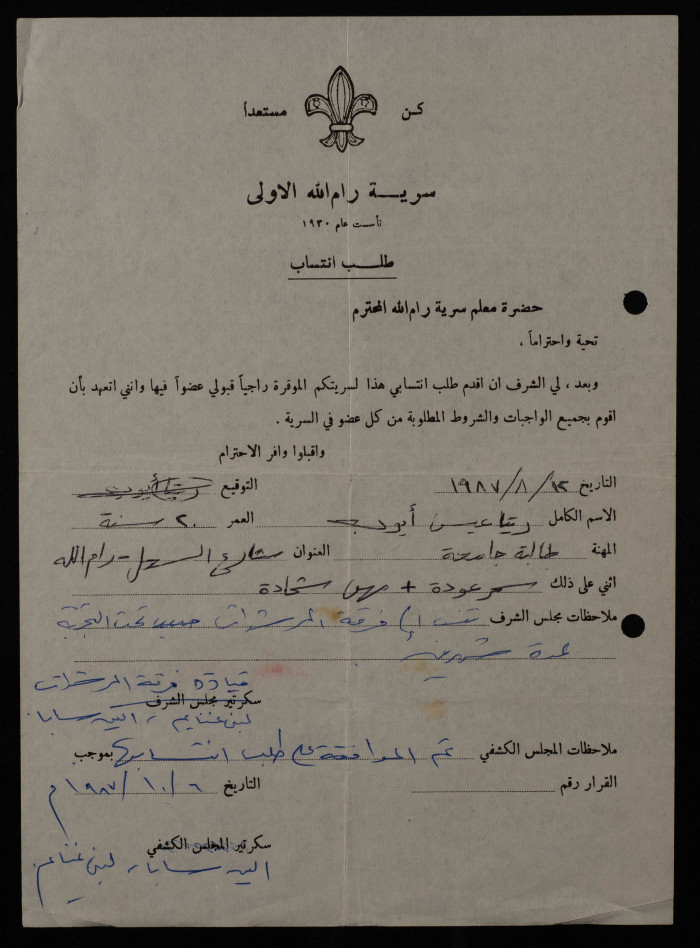 كن مستعداً
سرية رام الله الاولى
تأسست عام ١٩٣٠
طلب انتساب
حضرة معلم سرية رام الله المحترم
تحية واحتراماً ،
وبعد ، لي الشرف ان اقدم طلب انتسابي هذا لسريتكم الموقرة راجياً قبولي عضواً فيها وانني اتعهد بأن
اقوم بجميع الواجبات والشروط المطلوبة من كل عضو في السرية .
واقبلوا وافر الاحترام
التاريخ ١٢/٨/١٩٨٧ التوقيع
الاسم الكامل ريتا عيسى أيوب العمر ٢٠ سنة
المهنة طالبة جامعة العنوان شارع السهل - رام الله
اثني على ذلك سمر عودة + شحادة
ملاحظات مجلس الشرف فرقة المرشدات تحت التجربة
لمدة شهرين
قيادة فرقة المرشدات
سكرتير مجلس الشرف
لبنى غنايم ، سابا
ملاحظات المجلس الكشفي تم الموافقة على طلب انتسابها بموجب
القرار رقم التاريخ ٦/١٠/١٩٨٧م
سكرتير المجلس الكشفي
سابا ، لبنى غنايم